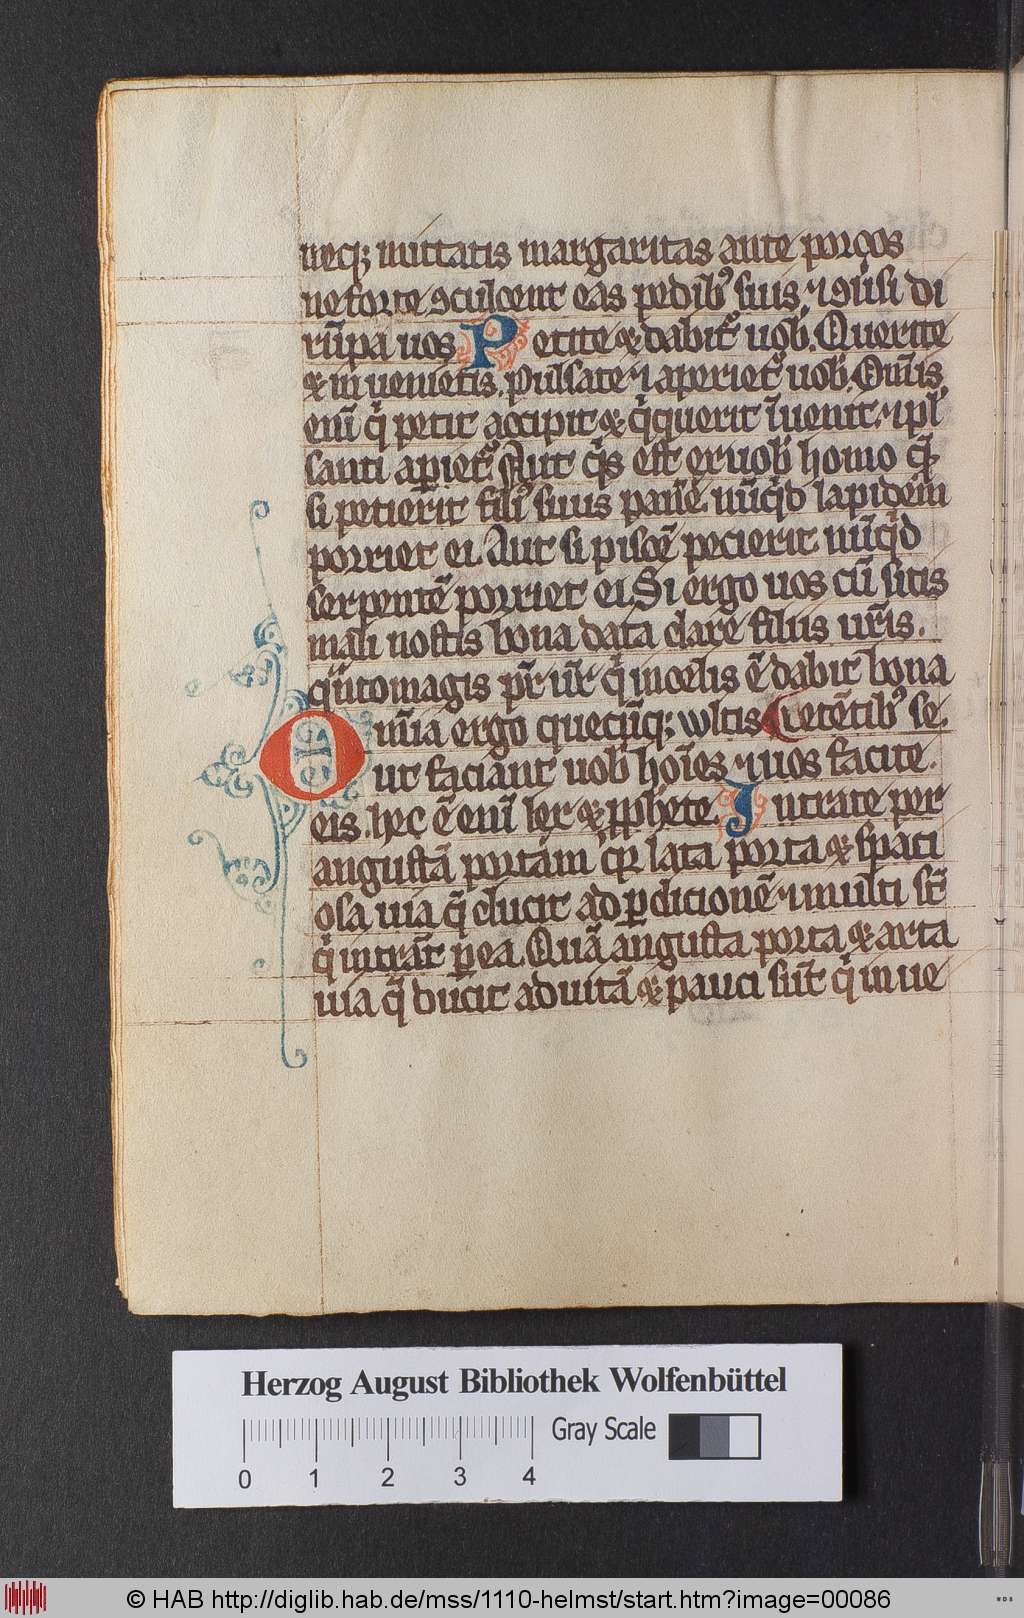 neqꝫ mittatis margaritas ante porcos
ne forte ꝯculcent eas pedibꝰ suis ⁊ ꝯu̓si di
rūpā uos Petite & dabitᷣ uob̓. Querite
& in uenietis. Pulsate ⁊ aperietᷣ uob̓. Om̄is
eni̅ q̇ petit accipit & q̇ querit īuenit. ⁊ pl̓
santi apietᷣ. Aut q̇s est ex uob̓ homo que̅
si petierit filiꝰ suus pane̅. nu̅q̇d lapidem
porriet ei. Aut si pisce̅ pecierit nu̅q̇d
serpente̅ porriet ei. Si ergo uos cu̅ sitis
mali nostis bona data dare filiis ur̅is.
qu̅tomagis pr̅ ur̅ q̇ in celis e̅ dabit bona
Om̅ia ergo quecu̅qꝫ wltis pete̅tibꝰ se.
ut faciant uob̓ hoi̅es ⁊ uos facite.
eis. hec e̅ eni̅ lex & ꝓphete. Intrate per
angusta̅ portam q̇ lata porta & spaci
osa uia q̅ ducit ad ꝑdicione̅ ⁊ multi su̅t
q̇ intra̅t ꝑ ea. Qua̅ angusta porta & arta
uia q̅ ducit ad uita̅ & pauci su̅t q̇ in ue
Herzog August Bibliothek Wolfenbüttel
Gray Scale
0 1 2 3 4
© HAB http://diglib.hab.de/mss/1110-helmst/start.htm?image=00086